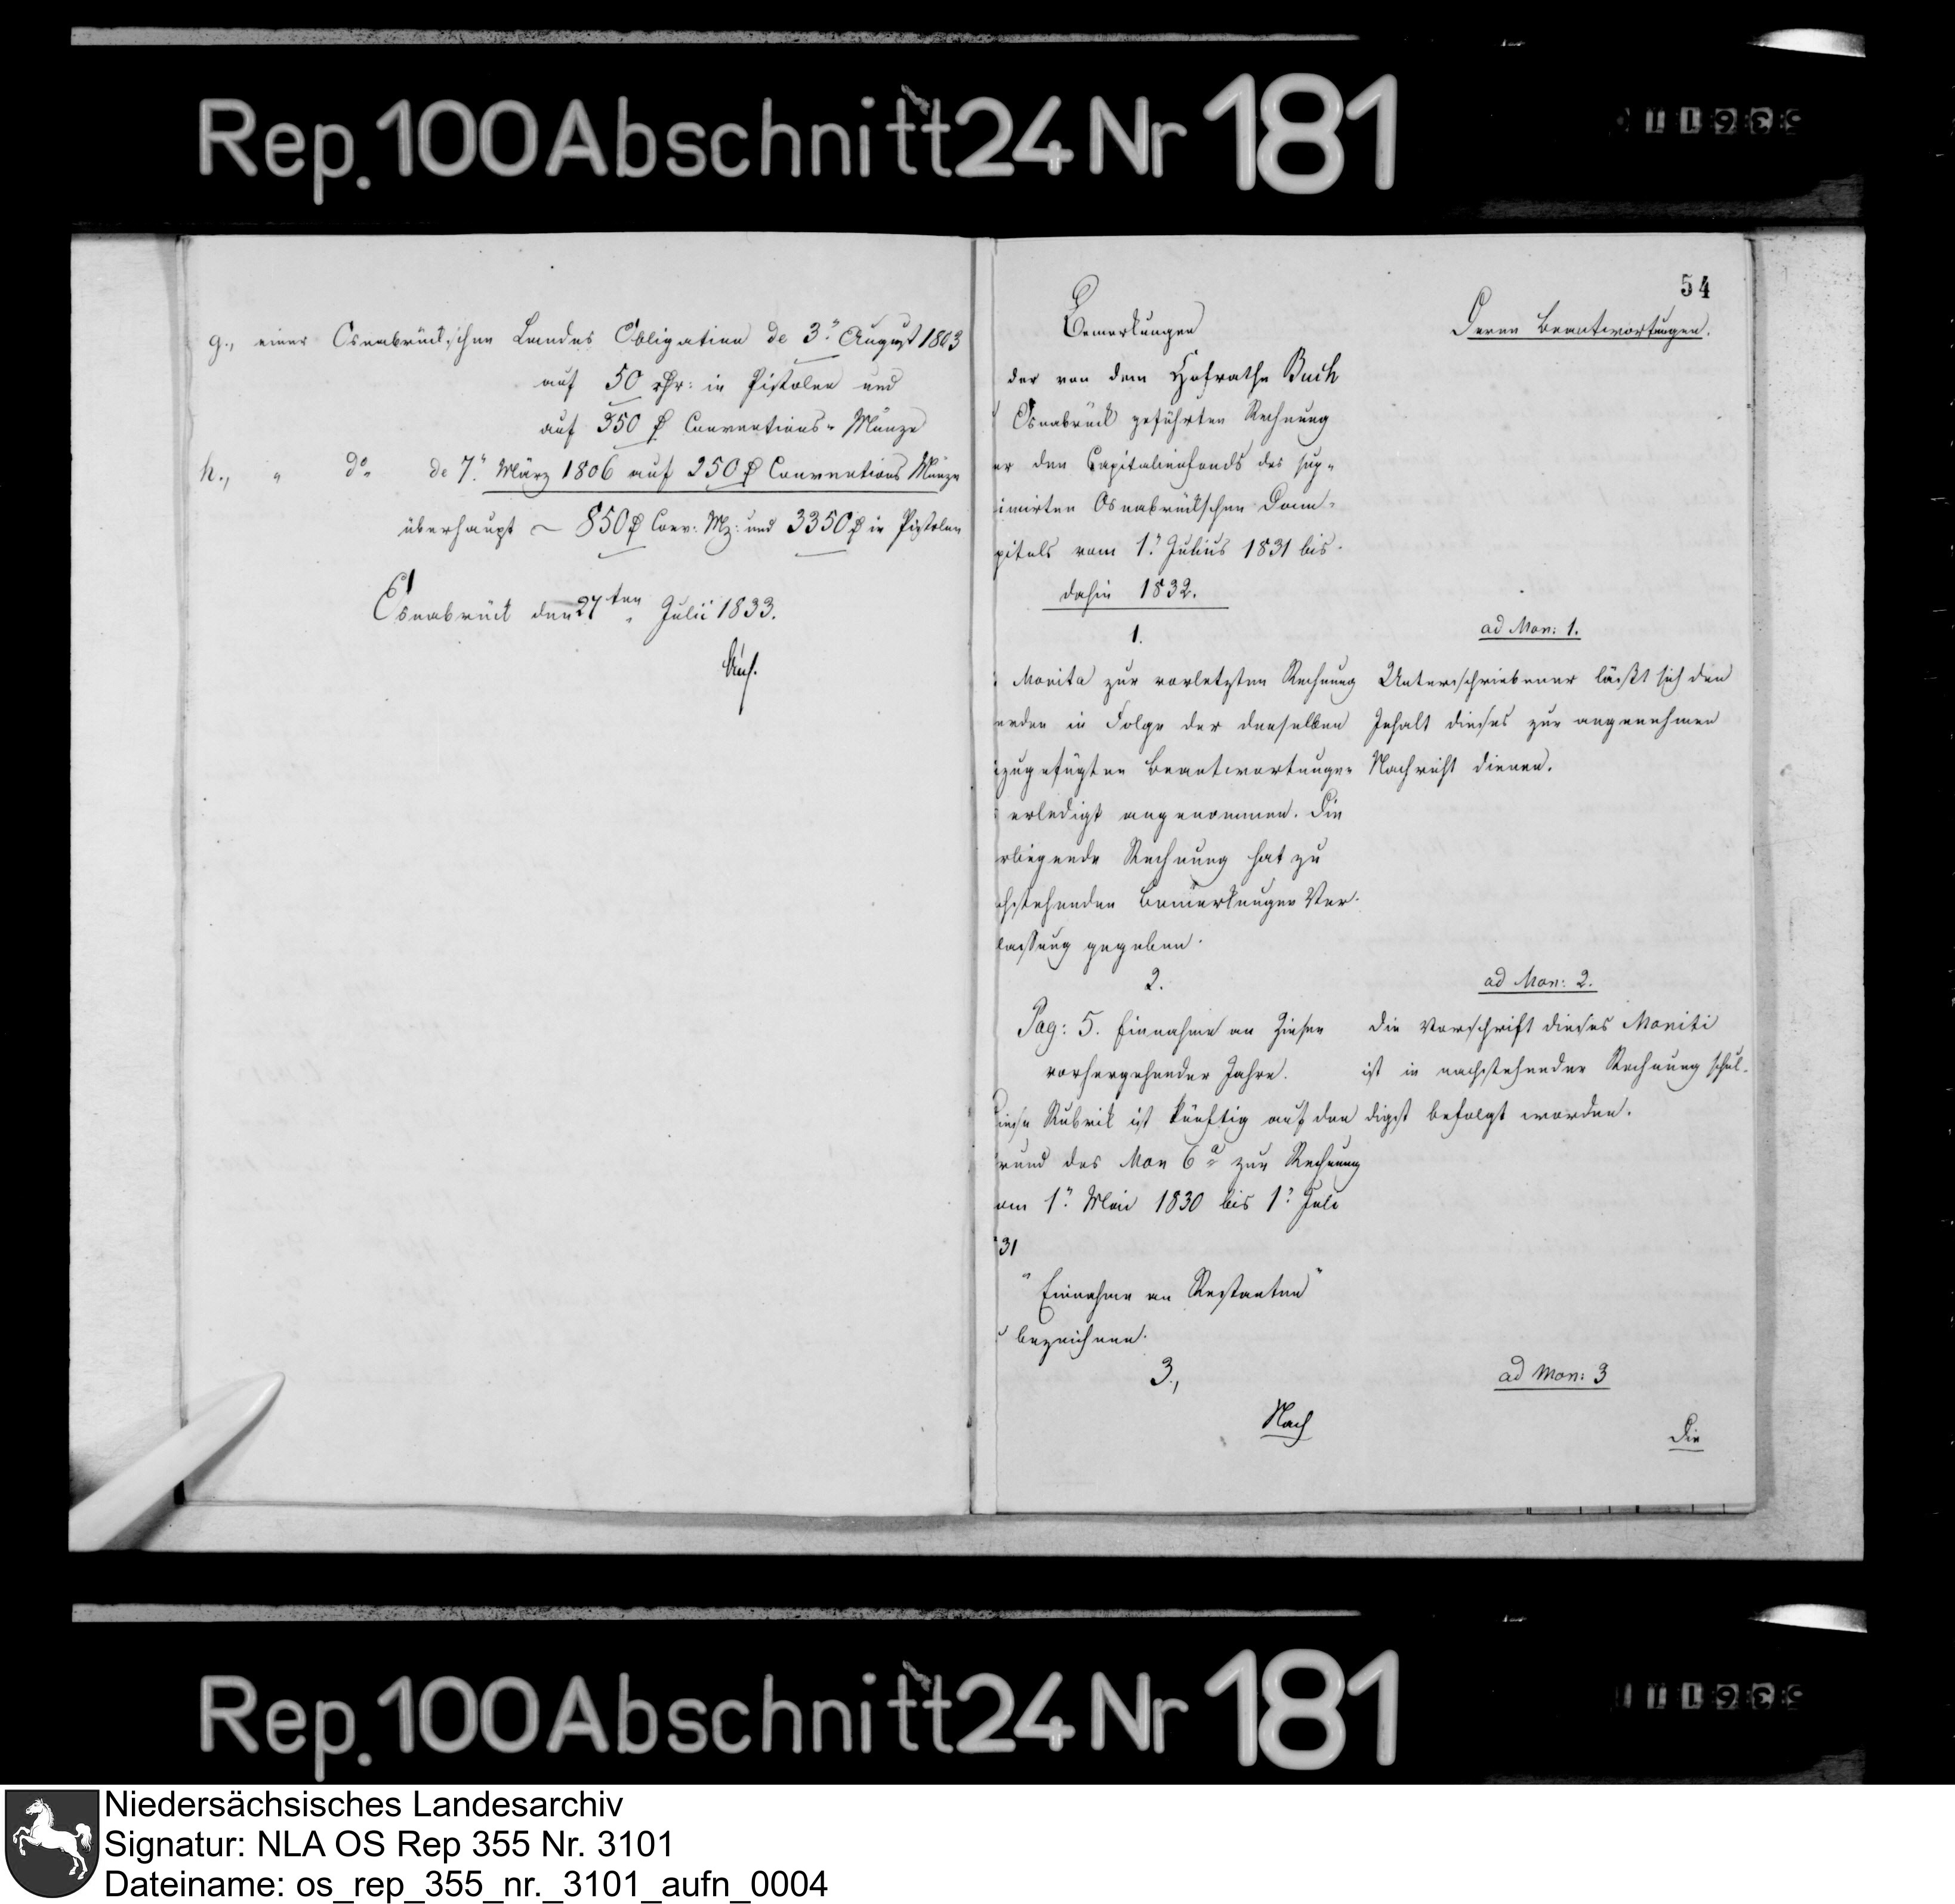 Rep. 100 Abschnitt 24 Nr 181
g., einer Osnabrück'schen Landes Obligation de 3t August 1803
auf 50 rthr: in Pistolen und
auf 350 ₰ Conventions-Münze
h., " do de 7t März 1806 auf 250 ₰ Conventions Münze
überhaupt ~ 850 ₰ Conv: Mz: und 3350 ₰ in Pistolen
Osnabrück den 27ten Julii 1833.
54
Bemerkungen
der von dem Hofrathe Buch
Osnabrück geführten Rechnung
er den Capitalienfonds des sup-
imirten Osnabrückschen Dom-
pitels vom 1t Julius 1831 bis
dahin 1832.
1.
Monita zur vorletzten Rechnung
erden in Folge der denselben
zugefügten Beantwortungen
erledigt angenommen. Die
rliegende Rechnung hat zu
chstehenden Bemerkungen Ver-
lassung gegeben.
2.
Pag: 5. Einnahme an Zinsen
vorhergehender Jahre.
iese Rubrik ist künftig auf den
rund des Mon 6a zur Rechnung
om 1t Mai 1830 bis 1t Juli
31
"Einnahme an Restanten"
bezeichnen.
3.,
Nach
Deren Beantwortungen.
ad Mon: 1.
Unterschriebener läßt sich den
Inhalt dieses zur angenehmen
Nachricht dienen.
ad Mon: 2.
Die Vorschrift dieses Moniti
ist in nachstehender Rechnung schul-
digst befolgt worden.
ad Mon: 3
Die
Rep. 100 Abschnitt 24 Nr 181
Niedersächsisches Landesarchiv
Signatur: NLA OS Rep 355 Nr. 3101
Dateiname: os_rep_355_nr._3101_aufn_0004